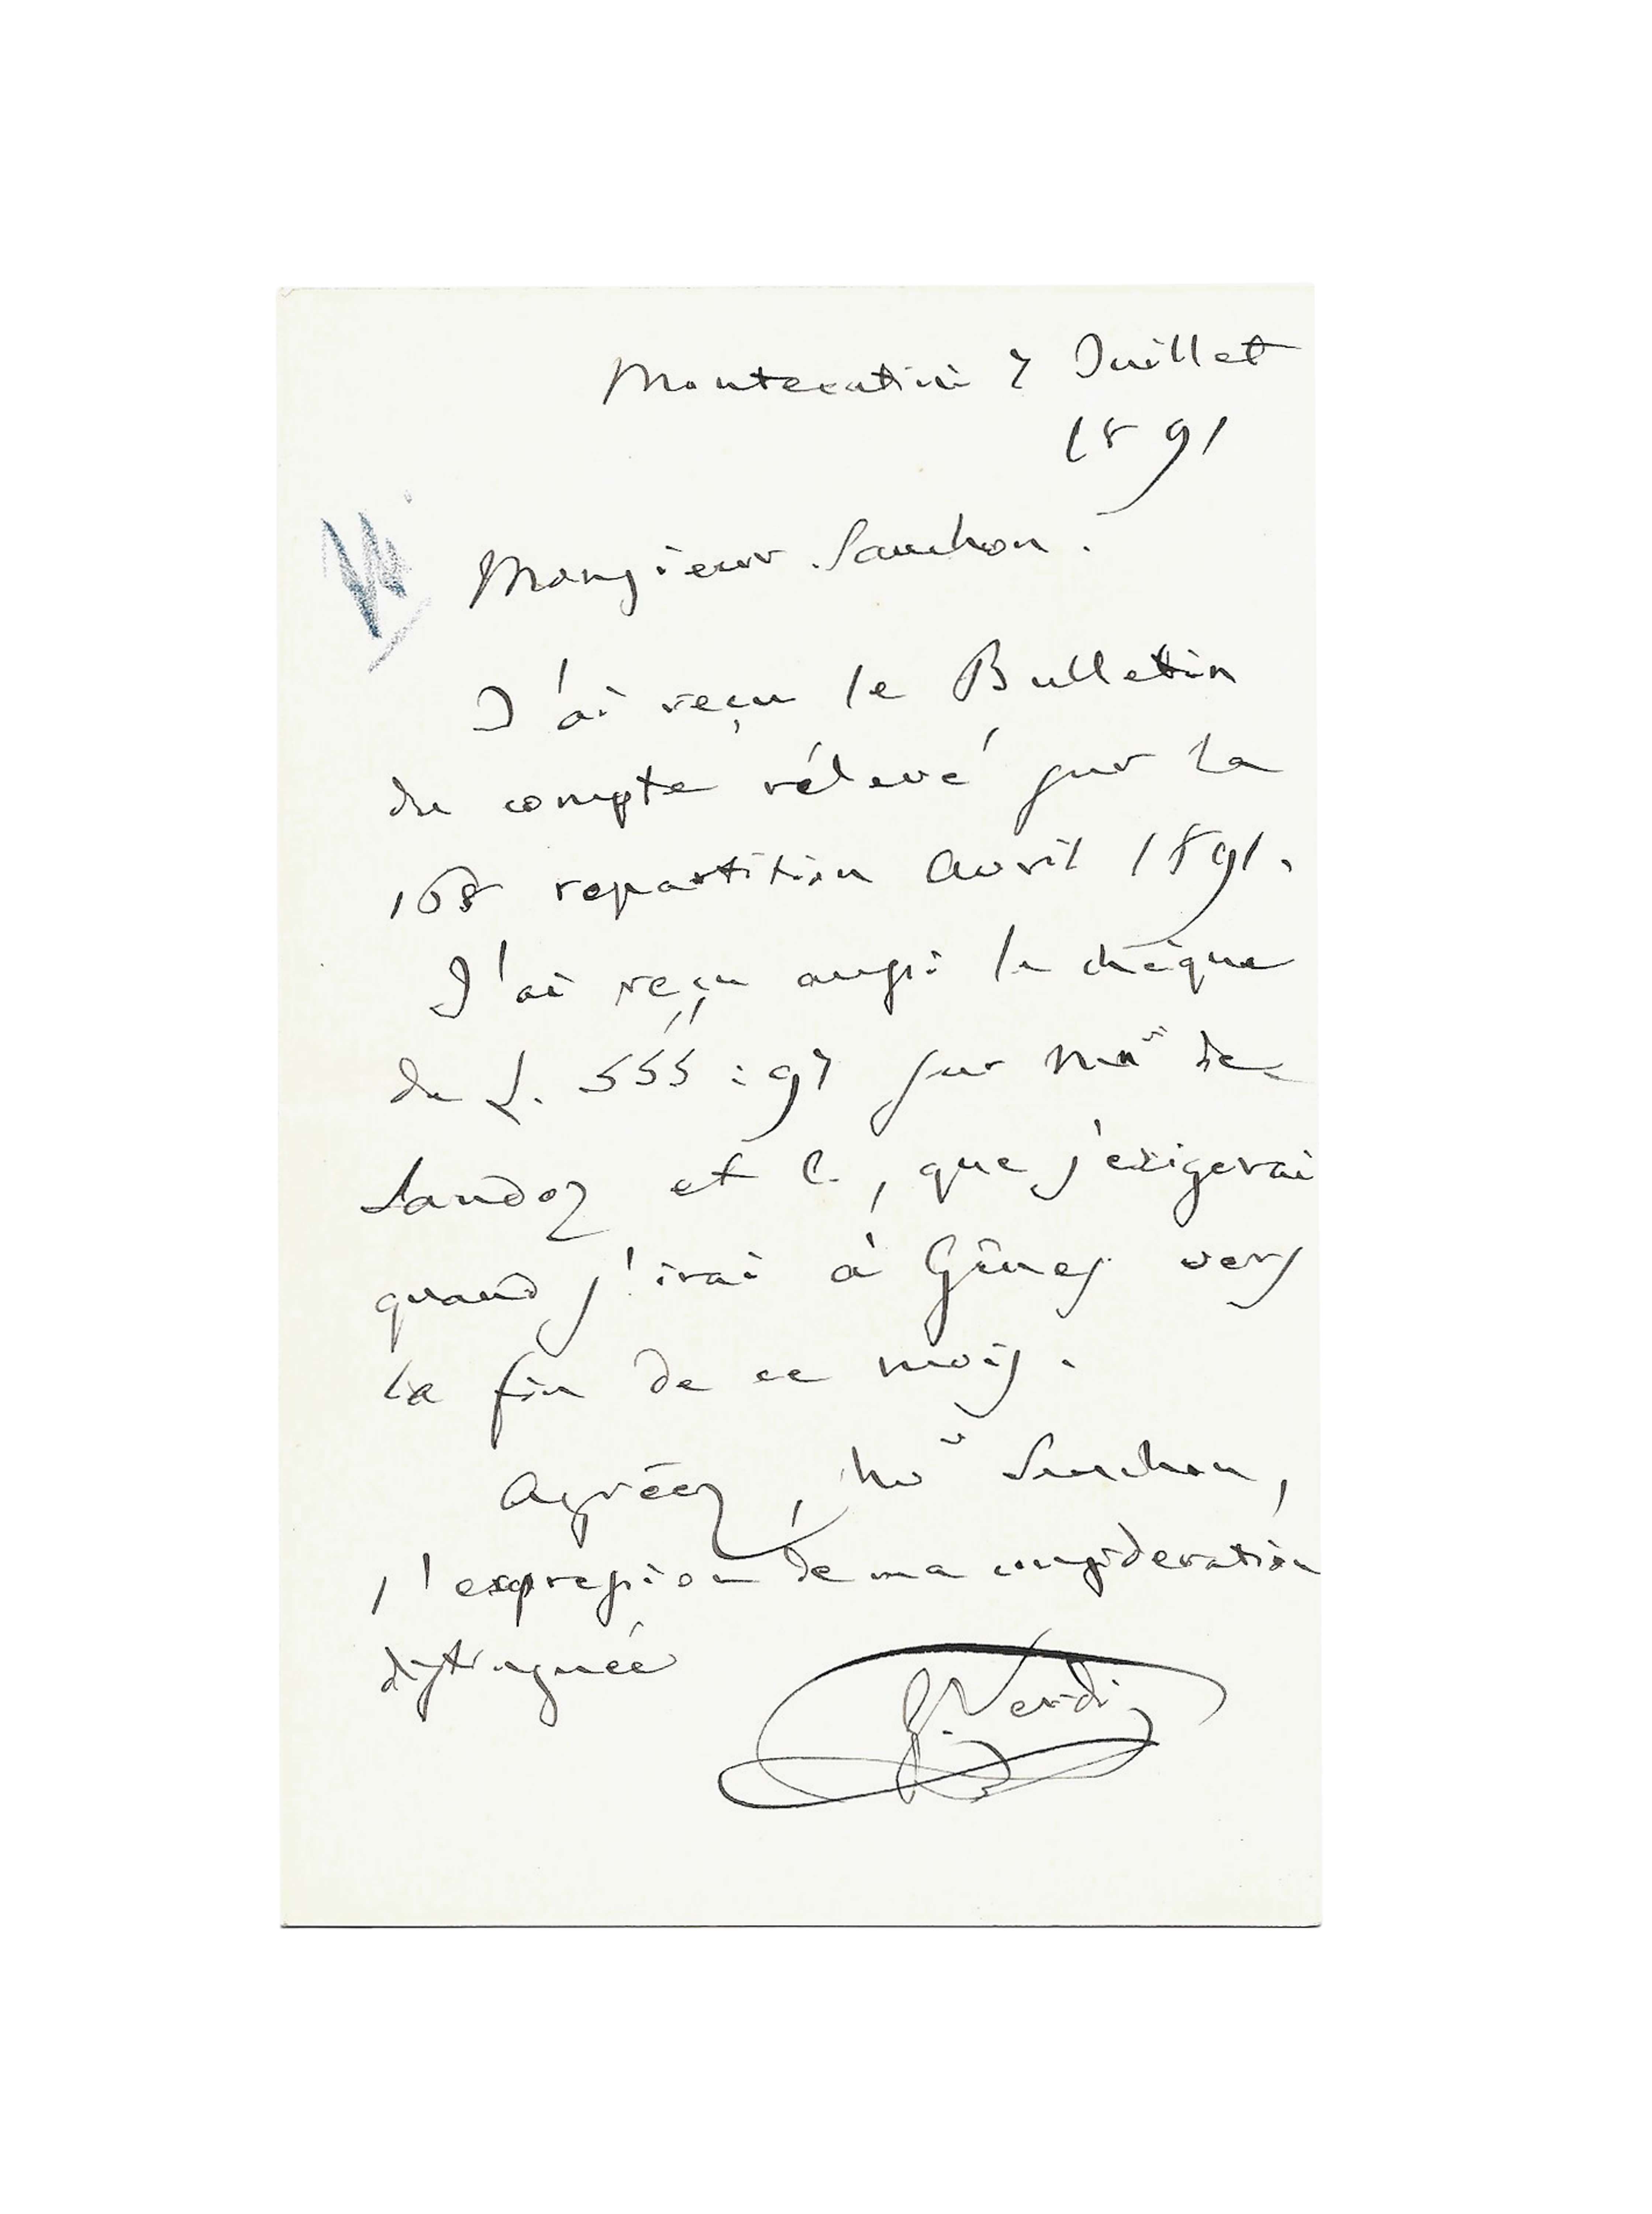 Montecatini 7 Juillet
1891
Monsieur Souchon.
J'ai reçu le Bulletin
du compte rélevé sur la
168 repartition Avril 1891.
J'ai reçu aussi le chèque
du L. 555:97 sur de
Sandoz et C., que j'exigerai
quand j'irai à Gênes vers
la fin de ce mois.
Agréez, Mr Souchon,
l'expression de ma consideration
distinguée
G. Verdi